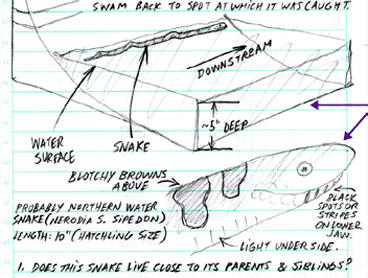 SWAM BACK TO SPOT AT WHICH IT WAS CAUGHT.
DOWNSTREAM
~5" DEEP
WATER
SURFACE
SNAKE
BLOTCHY BROWNS
ABOVE
PROBABLY NORTHERN WATER
SNAKE (NERODIA S. SIPEDON)
LENGTH: 10" (HATCHLING SIZE)
BLACK
SPOTS OR
STRIPES
ON LOWER
JAW.
LIGHT UNDERSIDE.
1. DOES THIS SNAKE LIVE CLOSE TO ITS PARENTS & SIBLINGS?